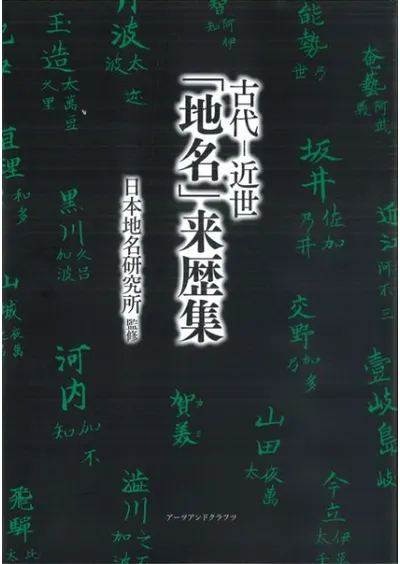 古代－近世
「地名」来歴集
日本地名研究所 監修
能勢
乃
世
智
阿
伊
丹波
太
玉造
太萬豆
久里
奄藝
阿武
坂井
佐加
乃井
近江
阿不三
直理
和多
黒川
久呂
加波
山城
夜萬
交野
加多
乃
壹岐島
河内
加不
知
賀美
山田
夜萬
太
今立
伊万
太千
飛驒
比
太
澁川
之不
加
アーツアンドクラフツ